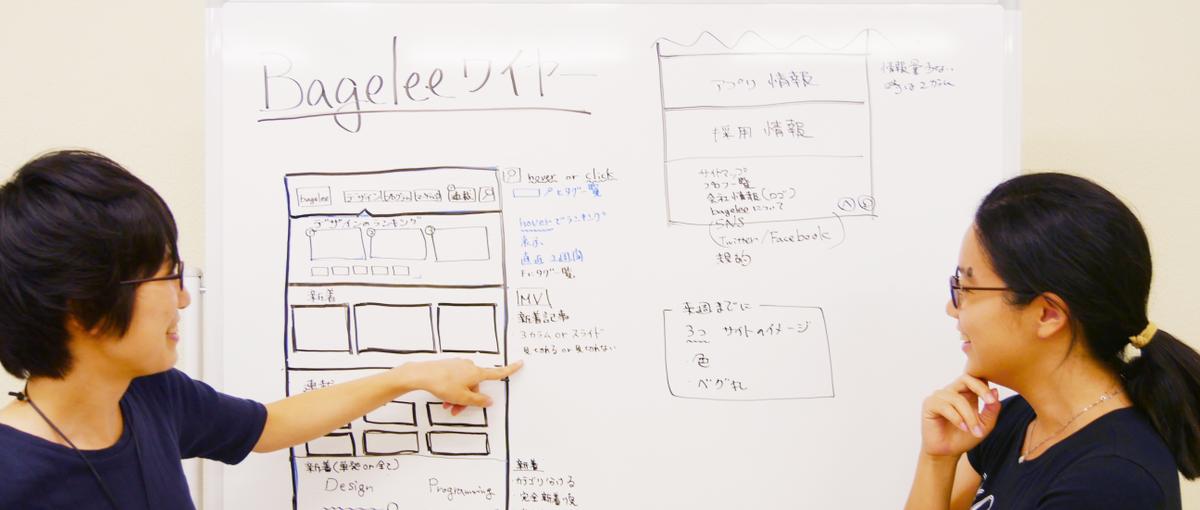 Bagelee ワイヤー
bagelee デザイン 連載
デザインのランキング
新着
新着(単発 or 全て)
Design Programming
hover or click
タグ一覧
hoverでランキング
表示
直近 2週間
下にタグ一覧
MV
新着記事
3カラム or スライド
見切れる or 見切れない
新着
カテゴリ分ける
完全新着順
アプリ 情報
採用 情報
サイトマップ
タグ一覧
会社情報(ロゴ)
bageleeについて
SNS
(Twitter/Facebook)
規約
情報量少ない
時は2カラム
来週までに
3つ サイトのイメージ
色